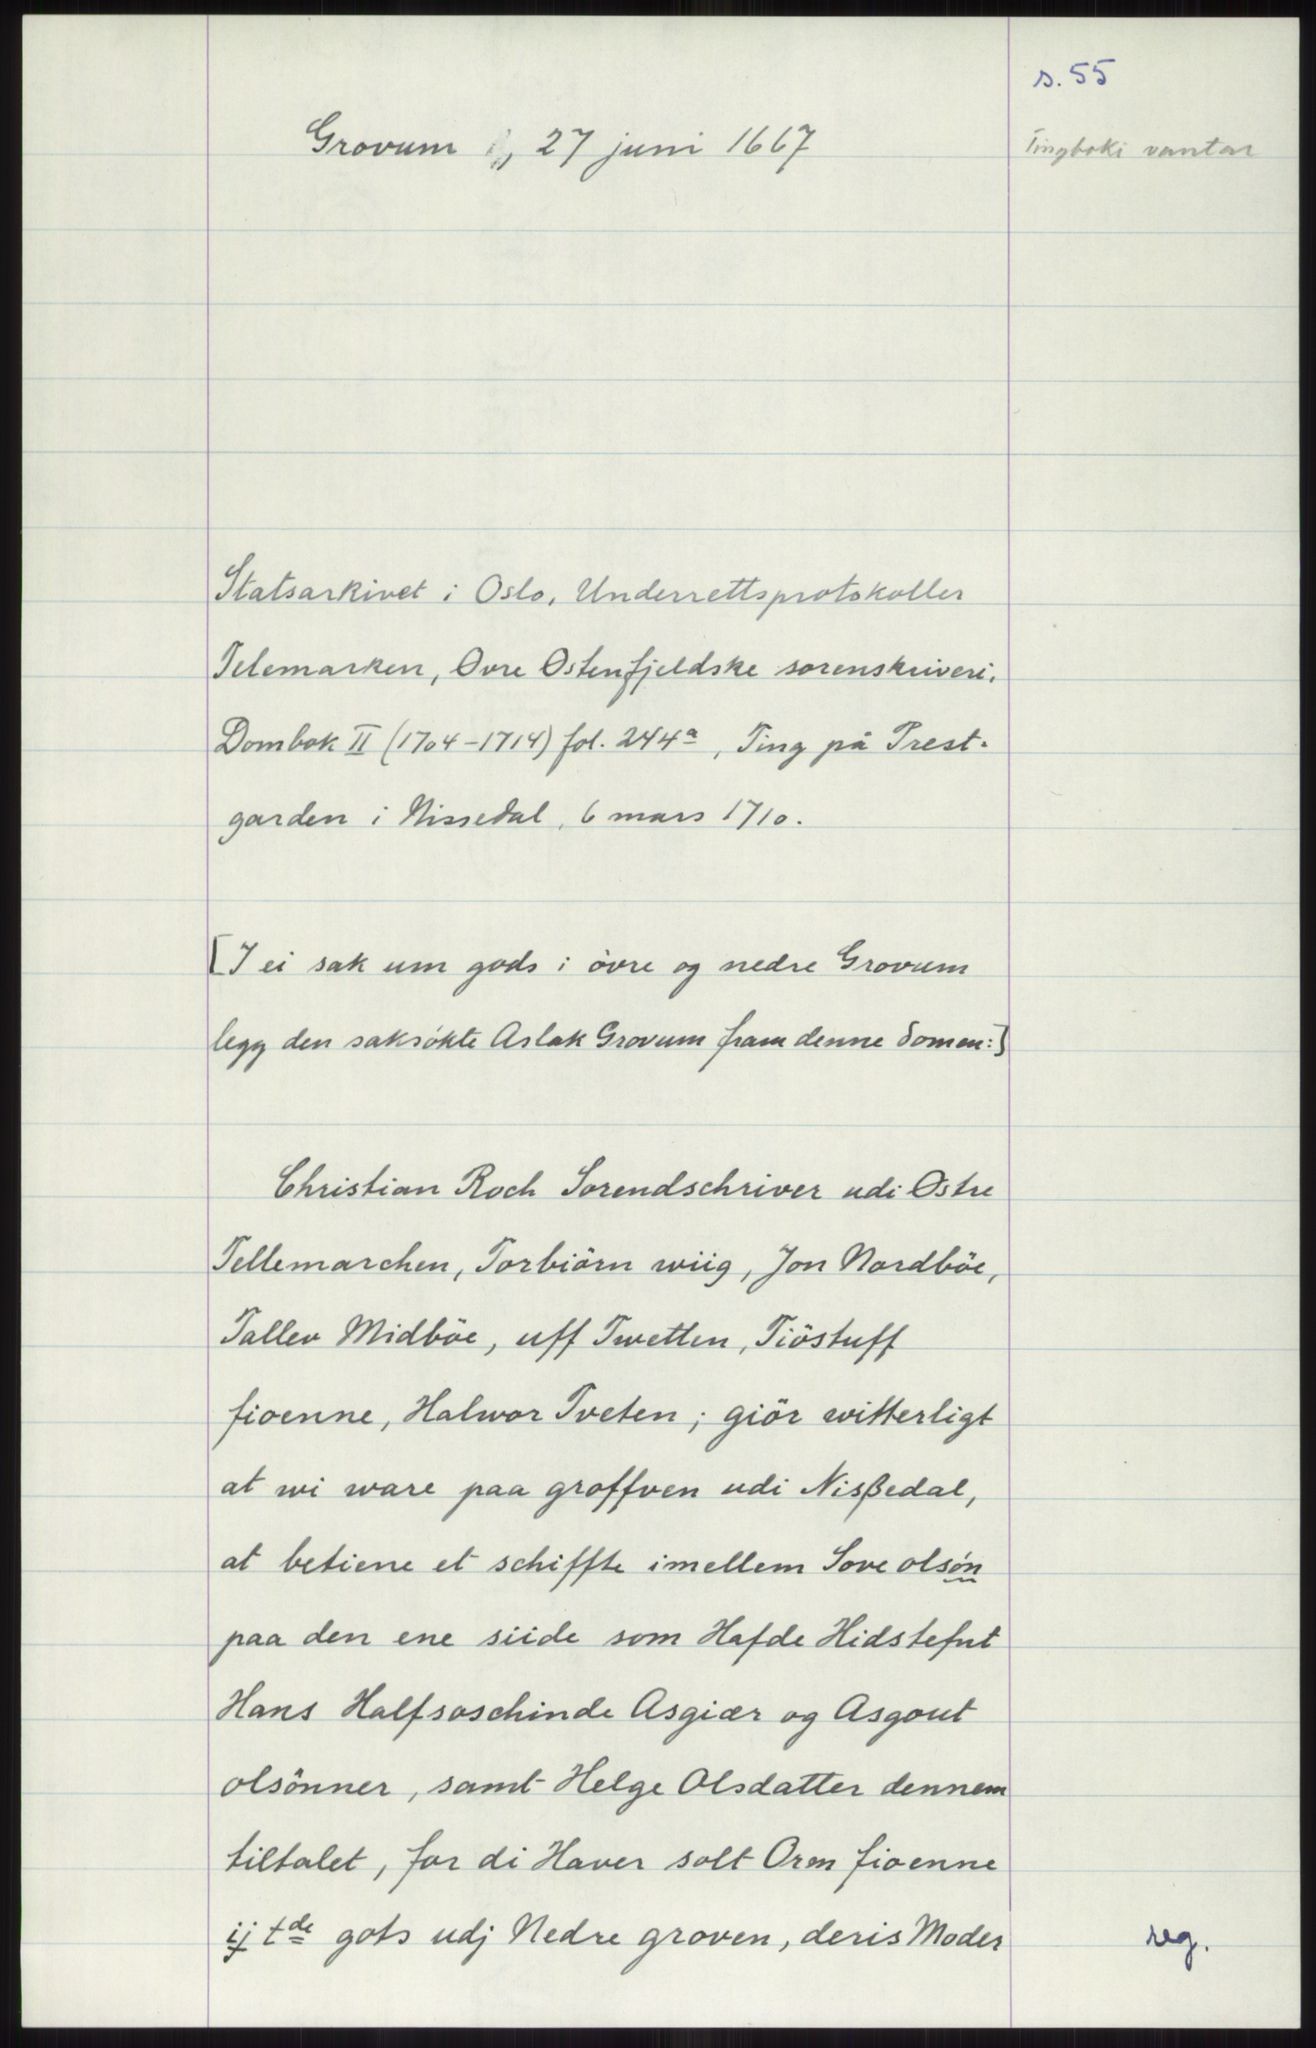 s. 55
Grovum, 27 juni 1667
Tingboki vantar
Statsarkivet i Oslo, Underrettsprotokoller
Telemarken, Øvre Østenfjeldske sorenskriveri,
Dombok II (1704-1714) fol. 244a, Ting på Prest-
garden i Nissedal, 6 mars 1710.
[I ei sak um gods i övre og nedre Grovum
legg den saksökte Aslak Grovum fram denne domen:]
Christian Roch Sorendschriver udi Østre
Tellemarchen, Torbiörn wiig, Jon Nordböe,
Tallev Midböe, uff Twetten, Tiöstuff
fioenne, Halwor Tveten; giör witterligt
at wi ware paa groffven udi Nisßedal,
at betiene et schiffte imellem Sove olsön
paa den ene siide som Hafde Hidstefnt
Hans Halfsøschinde Asgiær og Asgout
olsönner, samt Helge Olsdatter dennem
tiltalet, for di Haver solt Orm fioenne
ij tde gots udj Nedre groven, deris Moder
reg.